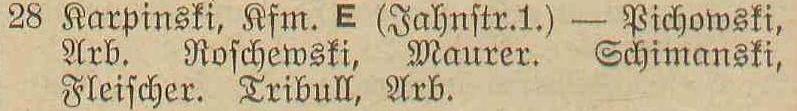 28 Karpinski, Kfm. E (Jahnstr.1.) — Pichowski,
Arb. Roschewski, Maurer. Schimanski,
Fleischer. Tribull, Arb.